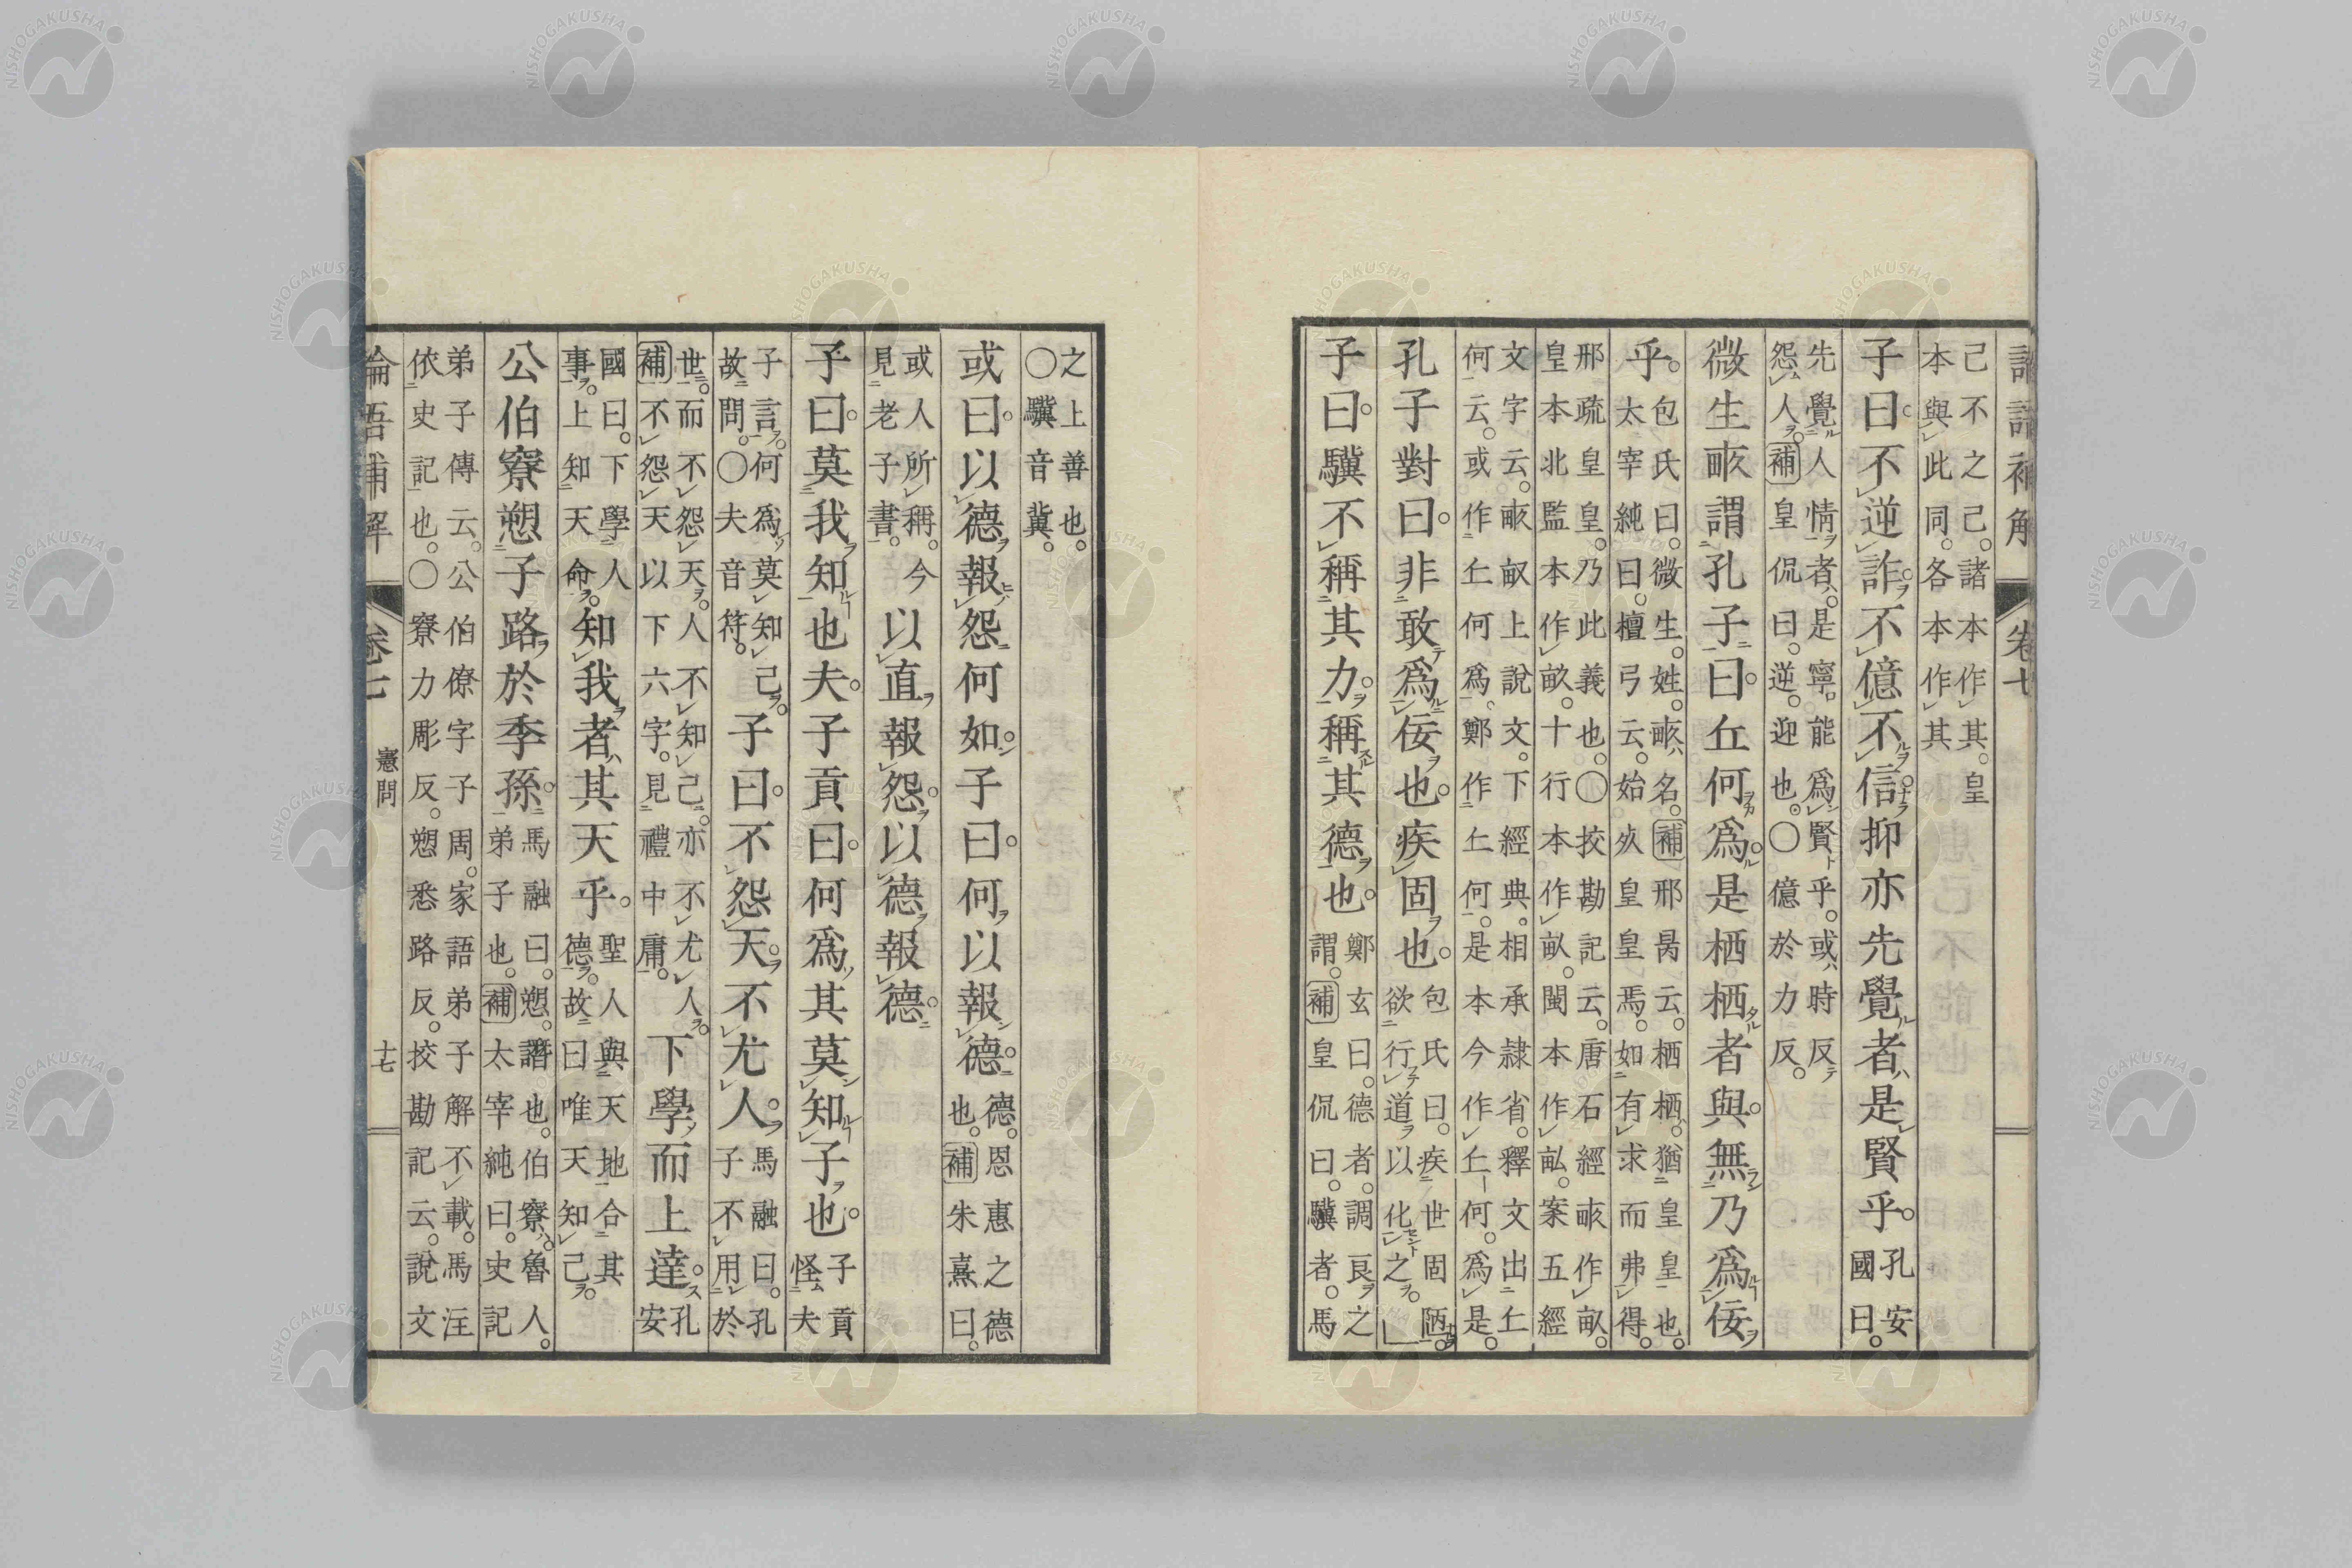 論語補解 卷七
己不之己。諸本作其。皇
本與此同。各本作其
子曰。不逆詐。不億不信。抑亦先覺者。是賢乎。孔安國曰。
先覺人情者。是寧能爲賢乎。或時反
怨人。補皇侃曰。逆。迎也。〇億於力反。
微生畞謂孔子曰。丘何爲是栖栖者與。無乃爲佞
乎。包氏曰。微生。姓。畞。名。補邢昺云。栖栖。猶皇皇也。
太宰純曰。檀弓云。始死皇皇焉。如有求而弗得。
邢疏皇皇。乃此義也。〇挍勘記云。唐石經畞作畝。
皇本北監本作畝。十行本作畝。閩本作畝。案五經
文字云。畞畝上說文。下經典。相承隷省。釋文出丘
何云。或作丘何爲、鄭作丘何。是本今作丘何。爲是。
孔子對曰。非敢爲佞也。疾固也。包氏曰。疾世固陋。
欲行道以化之。
子曰。驥不稱其力。稱其德也。鄭玄曰。德者。調良之
謂。補皇侃曰。驥者。馬
之上善也。
〇驥音冀。
或曰。以德報怨何如。子曰。何以報德。德。恩惠之德
也。補朱熹曰。
或人所稱。今
見老子書。
以直報怨。以德報德。
子曰。莫我知也夫。子貢曰。何爲其莫知子也。子貢
怪夫
子言。何爲莫知己。
故問。〇夫音符。
子曰。不怨天。不尤人。馬融曰。孔
子不用於
世。而不怨天。人不知己。亦不尤人。
補不怨天以下六字。見禮中庸。
下學而上達。孔
安
國曰。下學人
事。上知天命。
知我者。其天乎。聖人與天地合其
德。故曰唯天知己。
公伯寮愬子路於季孫。馬融曰。愬。譖也。伯寮。魯人。
弟子也。補太宰純曰。史記
弟子傳云。公伯僚字子周。家語弟子解不載。馬注
依史記也。〇寮力彫反。愬悉路反。挍勘記云。說文
論語補解 卷七 憲問 十七